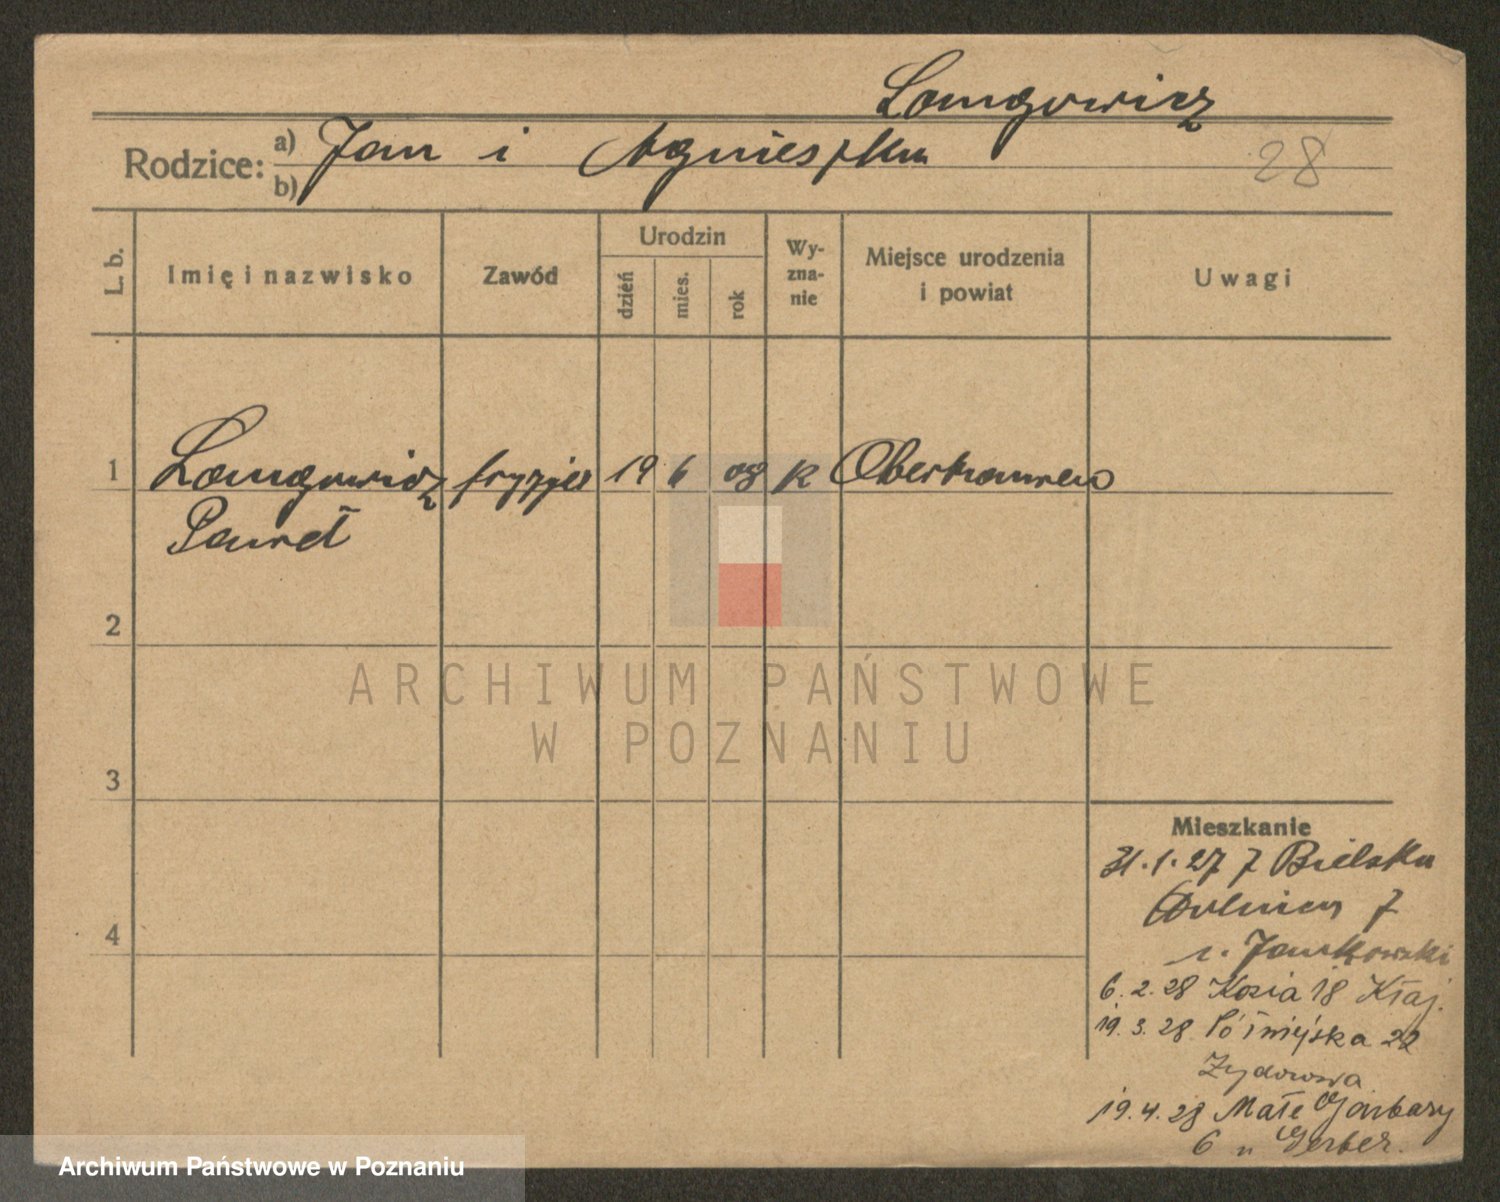 Langowicz
Rodzice: a) Jan i Agnieszka
b)
28
L. b.
Imię i nazwisko
Zawód
Urodzin
dzień
mies.
rok
Wy-
zna-
nie
Miejsce urodzenia
i powiat
Uwagi
1 Langowicz fryzjer 19 6 08 k
Paweł
2
3
4
Mieszkanie
31.1.27 z Bielska
7
Jankowski
6.2.28 Kozia 18
19.3.28 22
Żydowska
19.4.28 Małe Garbary
6 u Gerber.
ARCHIWUM PAŃSTWOWE
W POZNANIU
Archiwum Państwowe w Poznaniu